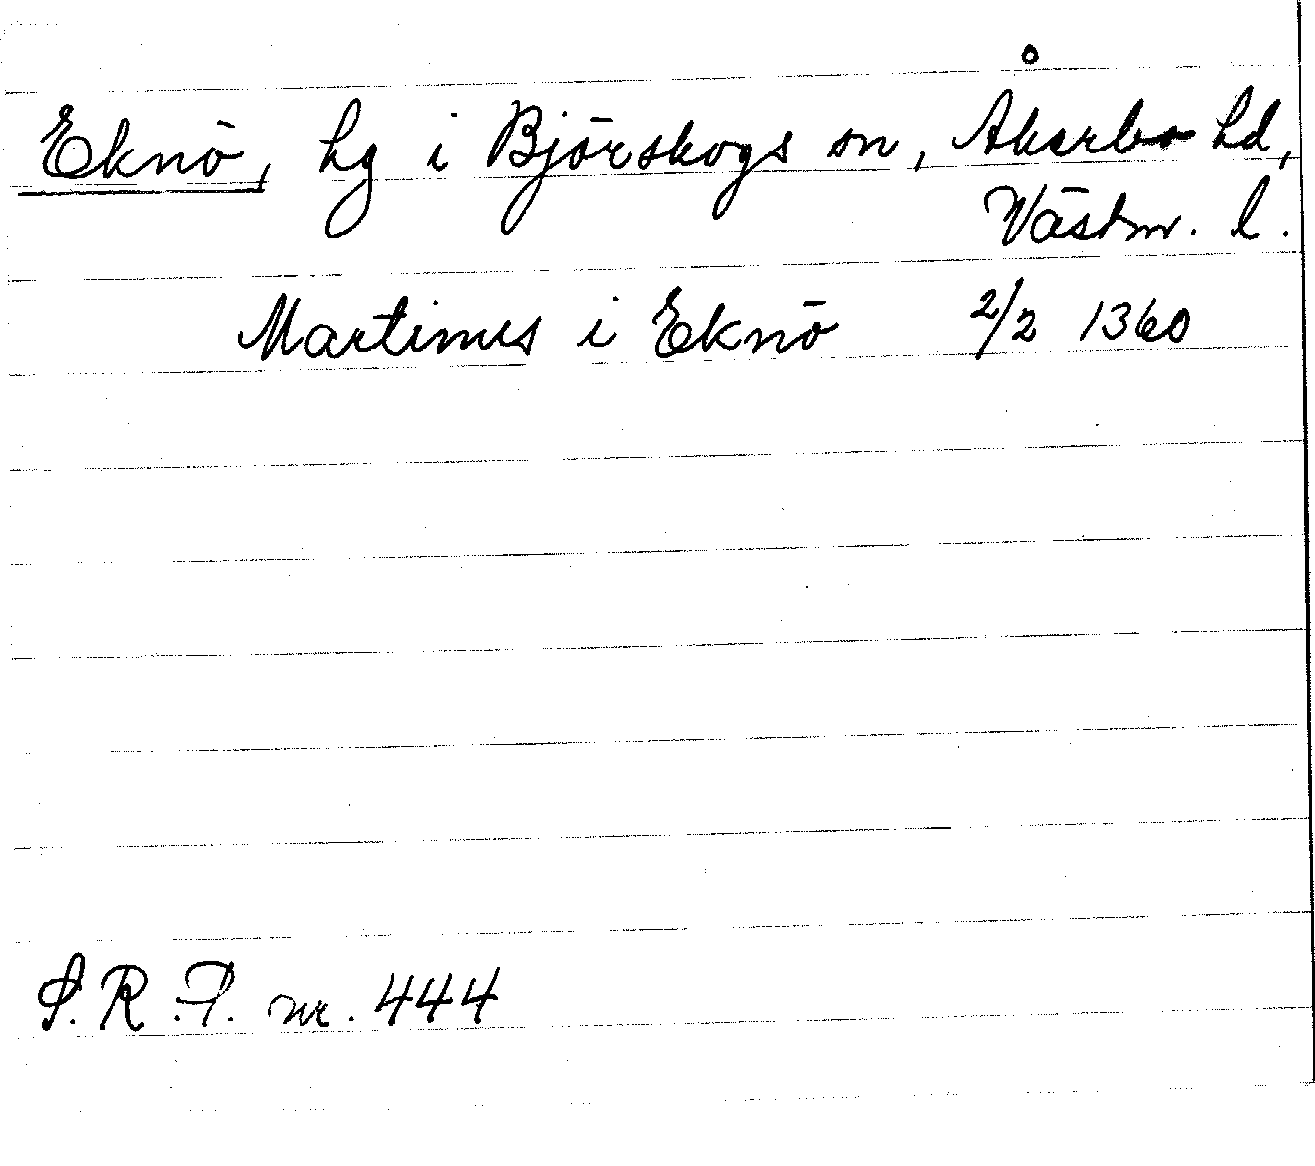 Å
Eknö, hg i Björskogs sn, Åkerbo hd,
Västm. l.
Martinus i Eknö 2/2 1360
S.R.P. nr. 444